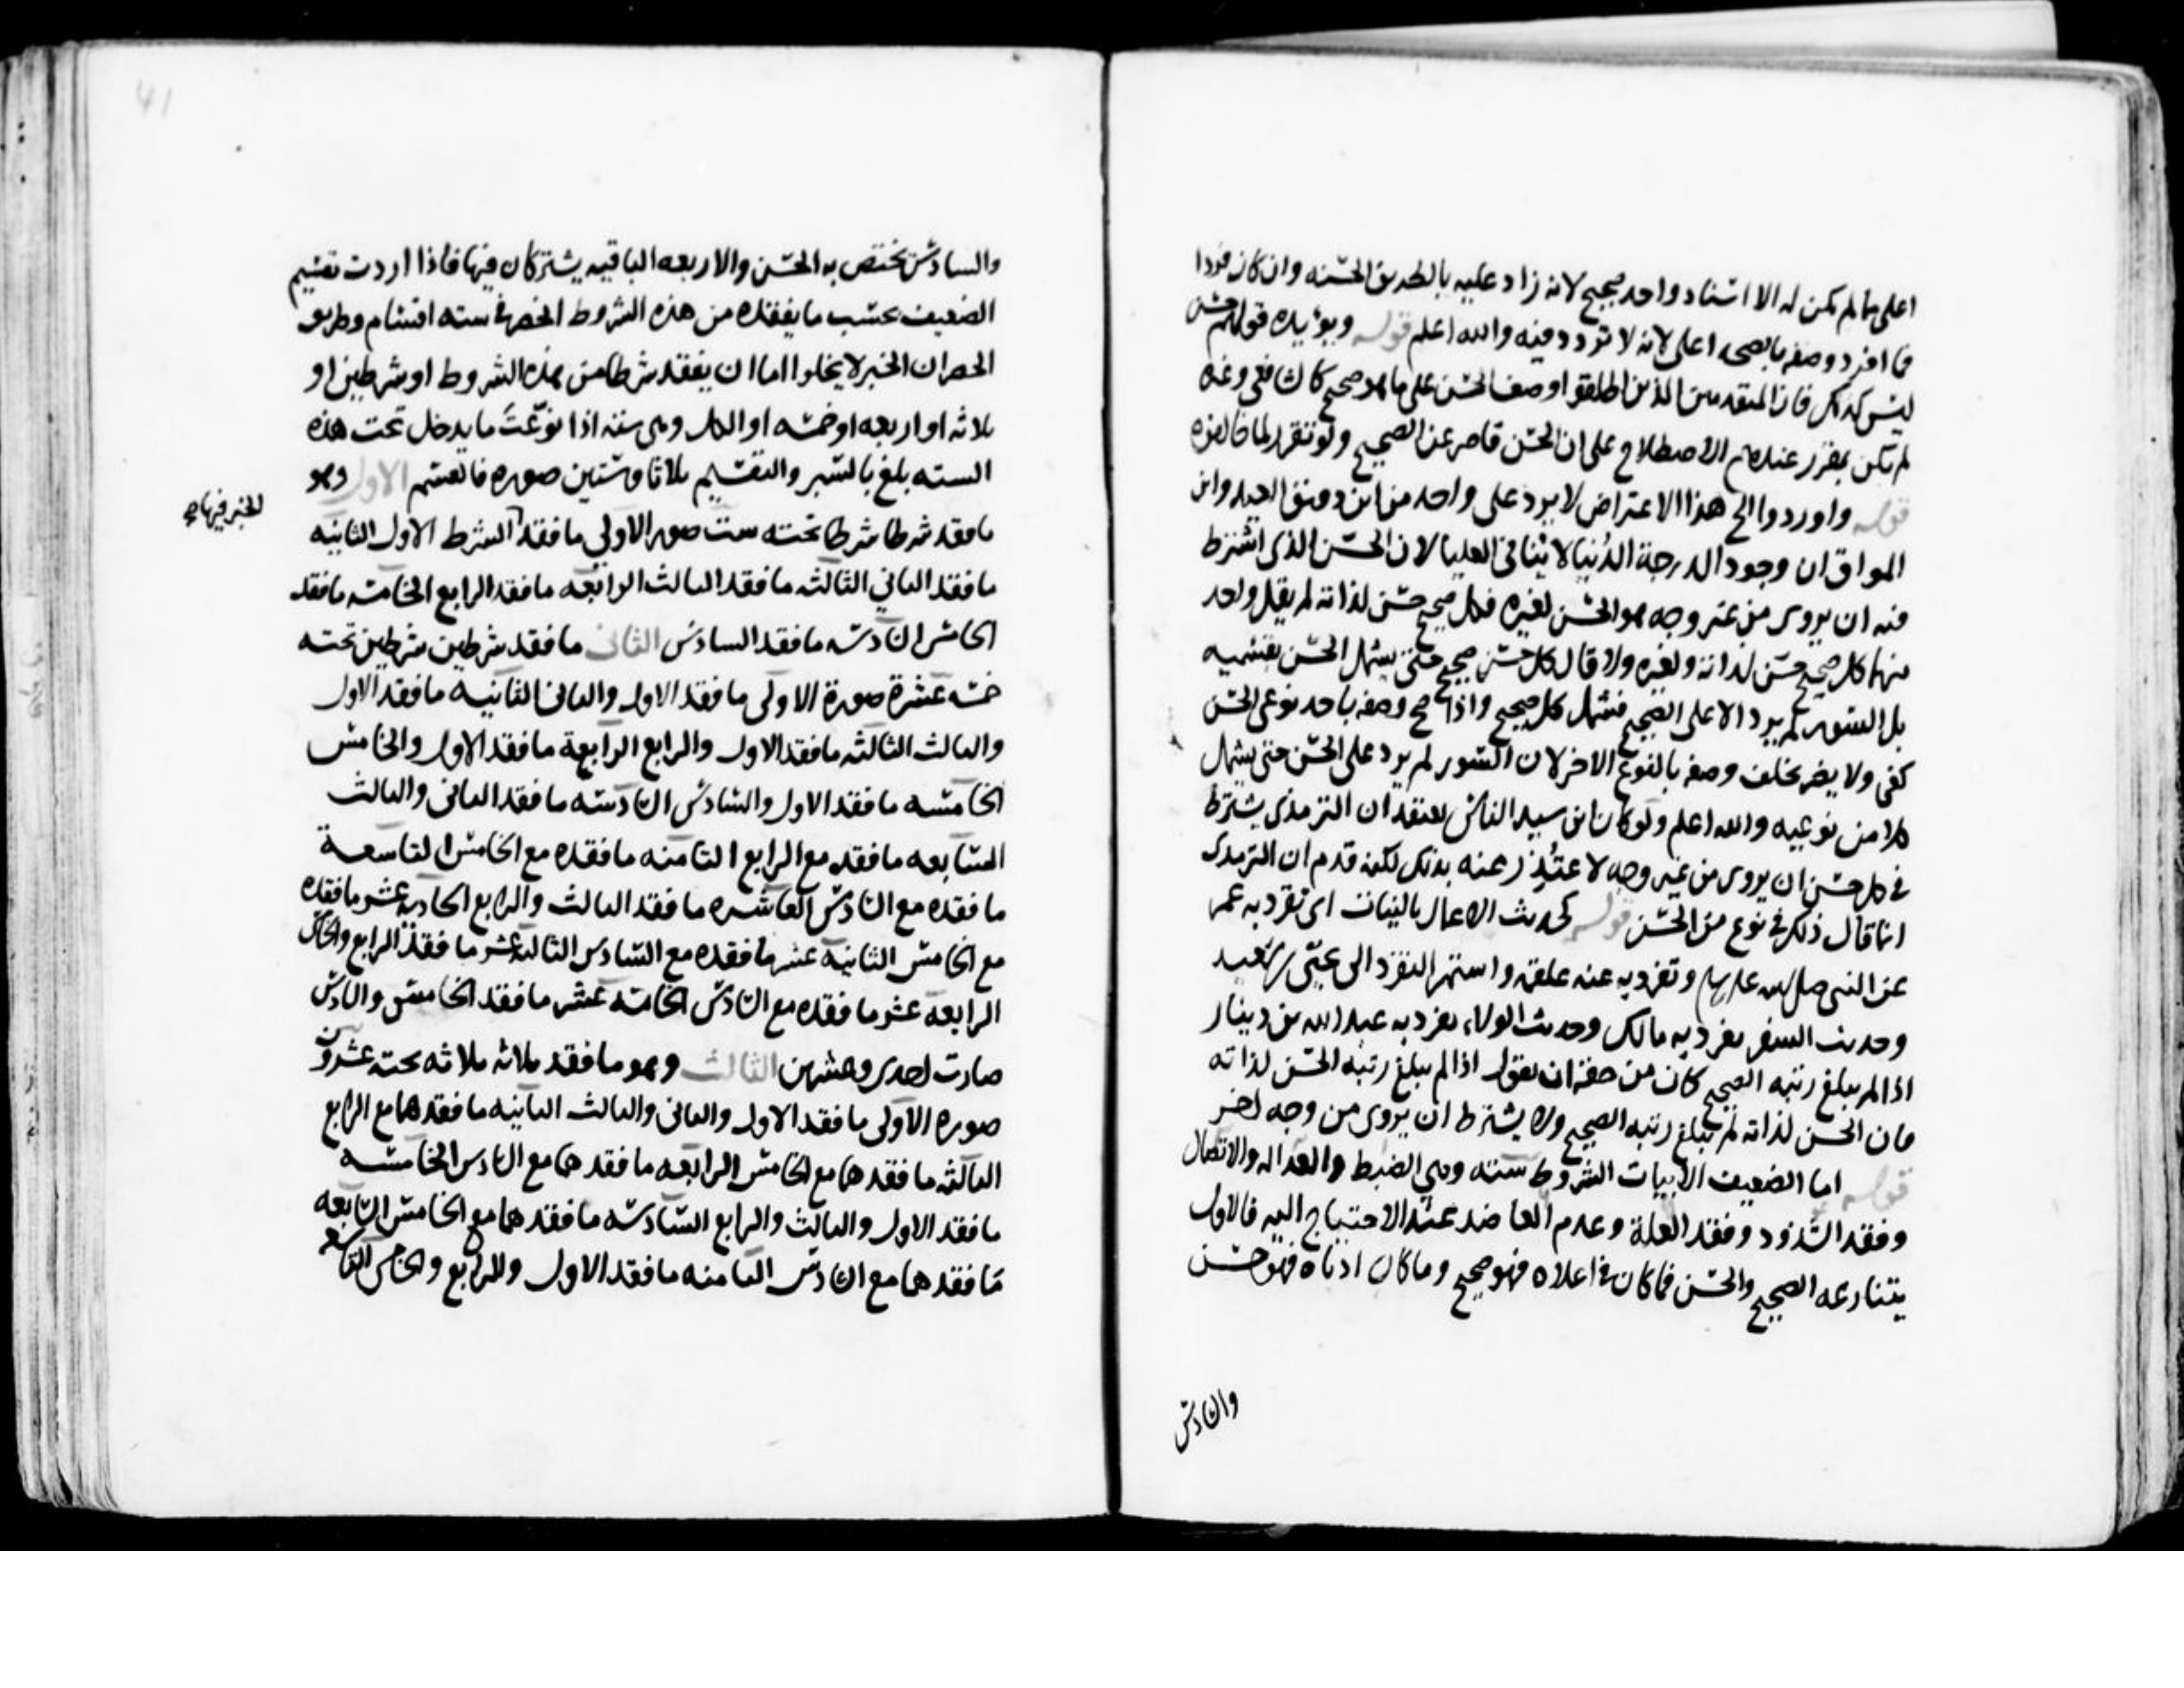 اعلى مما لم يكن له الا اسناد واحد صحيح لانه زاد عليه بالطريق الحسنه وان كان فردا
فما افرد وصفه بالصحه اعلى لانه لا تردد فيه والله اعلم قوله ويؤيده قولهم حسن
ليس كذلك فان المتقدمين الذين اطلقوا وصف الحسن على ما هو صحيح كالشافعي وغيره
لم يكن بمقرر عندهم الاصطلاح على ان الحسن قاصر عن الصحيح ولو تقرر لما خالفوه
قوله واوردوا الخ هذا الاعتراض لا يرد على واحد من ابن دقيق العيد وابن
المواق ان وجود الدرجة الدنيا لا ينافي العليا لان الحسن الذي اشترط
فيه ان يروى من غير وجه هو الحسن لغيره فكل صحيح حسن لذاته لم يقل واحد
منهما كل صحيح حسن لذاته ولغيره ولا قال كل حسن صحيح حتى يشمل الحسن بقسميه
بل السور لم يرد الا على الصحيح فشمل كل صحيح واذا صح وصفه باحد نوعي الحسن
كفى ولا يضر تخلف وصفه بالنوع الاخر لان السور لم يرد على الحسن حتى يشمل
كلا من نوعيه والله اعلم ولو كان ابن سيد الناس يعتقد ان الترمذي يشترط
في كل حسن ان يروى من غير وجه لاعتُذر عنه بذلك لكنه قدم ان الترمذي
انما قال ذلك في نوع من الحسن قوله كحديث الاعمال بالنيات اي تفرد به عمر
عن النبي صلى الله عليه وسلم وتفرد به عنه علقمة واستمر التفرد الى يحيى بن سعيد
وحديث السفر تفرد به مالك وحديث الولاء تفرد به عبد الله بن دينار
اذا لم يبلغ رتبه الصحيح كان من حقه ان يقول اذا لم يبلغ رتبه الحسن لذاته
فان الحسن لذاته لم يبلغ رتبه الصحيح ولا يشترط ان يروى من وجه اخر
قوله اما الضعيف الابيات الشروط سته وهي الضبط والعداله والاتصال
وفقد الشذوذ وفقد العلة وعدم العاضد عند الاحتياج اليه فالاول
يتنازعه الصحيح والحسن فما كان في اعلاه فهو صحيح وما كان ادناه فهو حسن
والسادس
والسادس يختص به الحسن والاربعه الباقيه يشتركان فيها فاذا اردت تقسيم
الضعيف بحسب ما يفقده من هذه الشروط انحصر في سته اقسام وطريق
الحصر ان الخبر لا يخلوا اما ان يفقد شرطا من هذه الشروط او شرطين او
ثلاثه او اربعه او خمسه او الكل وهي سته اذا نوّعتَ ما يدخل تحت هذه
السته بلغ بالسبر والتقسيم ثلاثا وستين صوره فالقسم الاول وهو
ما فقد شرطا شرطا تحته ست صور الاولى ما فقد الشرط الاول الثانيه
للخبر فيها صح
ما فقد الثاني الثالثه ما فقد الثالث الرابعه ما فقد الرابع الخامسه ما فقد
الخامس السادسه ما فقد السادس الثاني ما فقد شرطين شرطين تحته
خمسه عشرة صورة الاولى ما فقد الاول والثاني الثانية ما فقد الاول
والثالث الثالثه ما فقد الاول والرابع الرابعة ما فقد الاول والخامس
الخامسه ما فقد الاول والسادس السادسه ما فقد الثاني والثالث
السابعه ما فقده مع الرابع الثامنه ما فقده مع الخامس التاسعة
ما فقده مع السادس العاشره ما فقد الثالث والرابع الحاديه عشر ما فقده
مع الخامس الثانية عشر ما فقده مع السادس الثالثه عشر ما فقد الرابع والخامس
الرابعه عشر ما فقده مع السادس الخامسه عشر ما فقد الخامس والسادس
صارت احدى وعشرين الثالث وهو ما فقد ثلاثه ثلاثه تحته عشرون
صوره الاولى ما فقد الاول والثاني والثالث الثانيه ما فقدهما مع الرابع
الثالثه ما فقدهما مع الخامس الرابعه ما فقدهما مع السادس الخامسه
ما فقد الاول والثالث والرابع السادسه ما فقدهما مع الخامس السابعه
ما فقدهما مع السادس الثامنه ما فقد الاول والرابع والخامس التاسعه
41